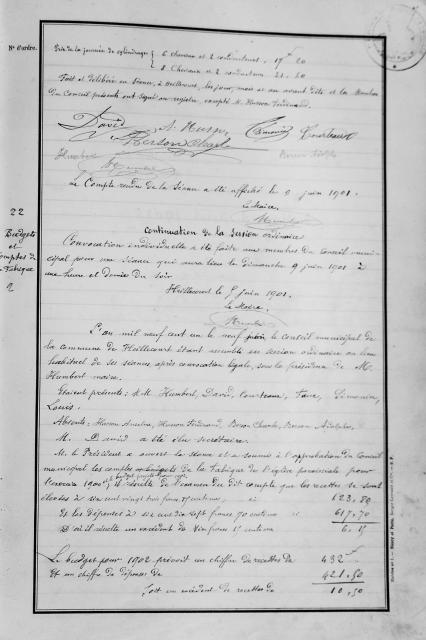 N° d'ordre.
Prix de la journée de cylindrage { 6 chevaux et 2 conducteurs. 17 20
8 Chevaux et 2 conducteurs 21. 20
Fait et délibéré en séance, à Huillecourt, les jour, mois et an avant dits et les membres
du Conseil présents ont signé au registre, excepté M. Husson Ferdinand.
David A. Husson Simonin Courteaux
Herson Charles
Humbert
Le Compte rendu de la Séance a été affiché le 9 juin 1901.
Le Maire,
Humbert
22
Budgets
et
Comptes de
la Fabrique
Continuation de la Session ordinaire
Convocation individuelle a été faite aux membres du Conseil muni-
cipal pour une séance qui aura lieu le dimanche 9 juin 1901 à
une heure et demie du soir
Huillecourt le 5 juin 1901.
Le Maire,
Humbert
L'an mil neuf cent un le neuf juin le conseil municipal de
la commune de Huillecourt étant rassemblé en session ordinaire au lieu
habituel de ses séances après convocation légale, sous la présidence de M.
Humbert maire.
Etaient présents: M.M. Humbert, David, Courteaux, Favre, Simonin,
Louis.
Absents: Husson Ferdinand, Charles, Adolphe,
M. David a été élu secrétaire.
M. le Président a ouvert la séance et a soumis à l'approbation du Conseil
municipal les comptes et budgets de la Fabrique de l'église paroissiale pour
l'exercice 1900; il résulte de l'examen du dit compte que les recettes se sont
élevées à six cent vingt trois francs 85 centimes, ci 623,85
Et les dépenses à six cent dix sept francs 70 centimes ci 617,70
D'où il résulte un excédent de six francs 15 centimes 6,15
Le budget pour 1902 prévoit un chiffre de recettes de 432
Et un chiffre de dépenses de 421,50
Soit un excédent de recettes de 10,50